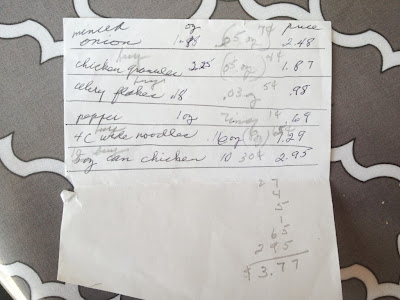 minced oz price
onion .65 oz 7¢ 2.48
chicken granules 2.25 .05 oz 4¢ 1.87
celery flakes .18 .03 oz 5¢ .98
pepper 1 oz 1¢ .69
4 C wide noodles 16 oz 1.29
10 oz can chicken 10 30¢ 2.95
7
4
5
1
65
295
$3.77